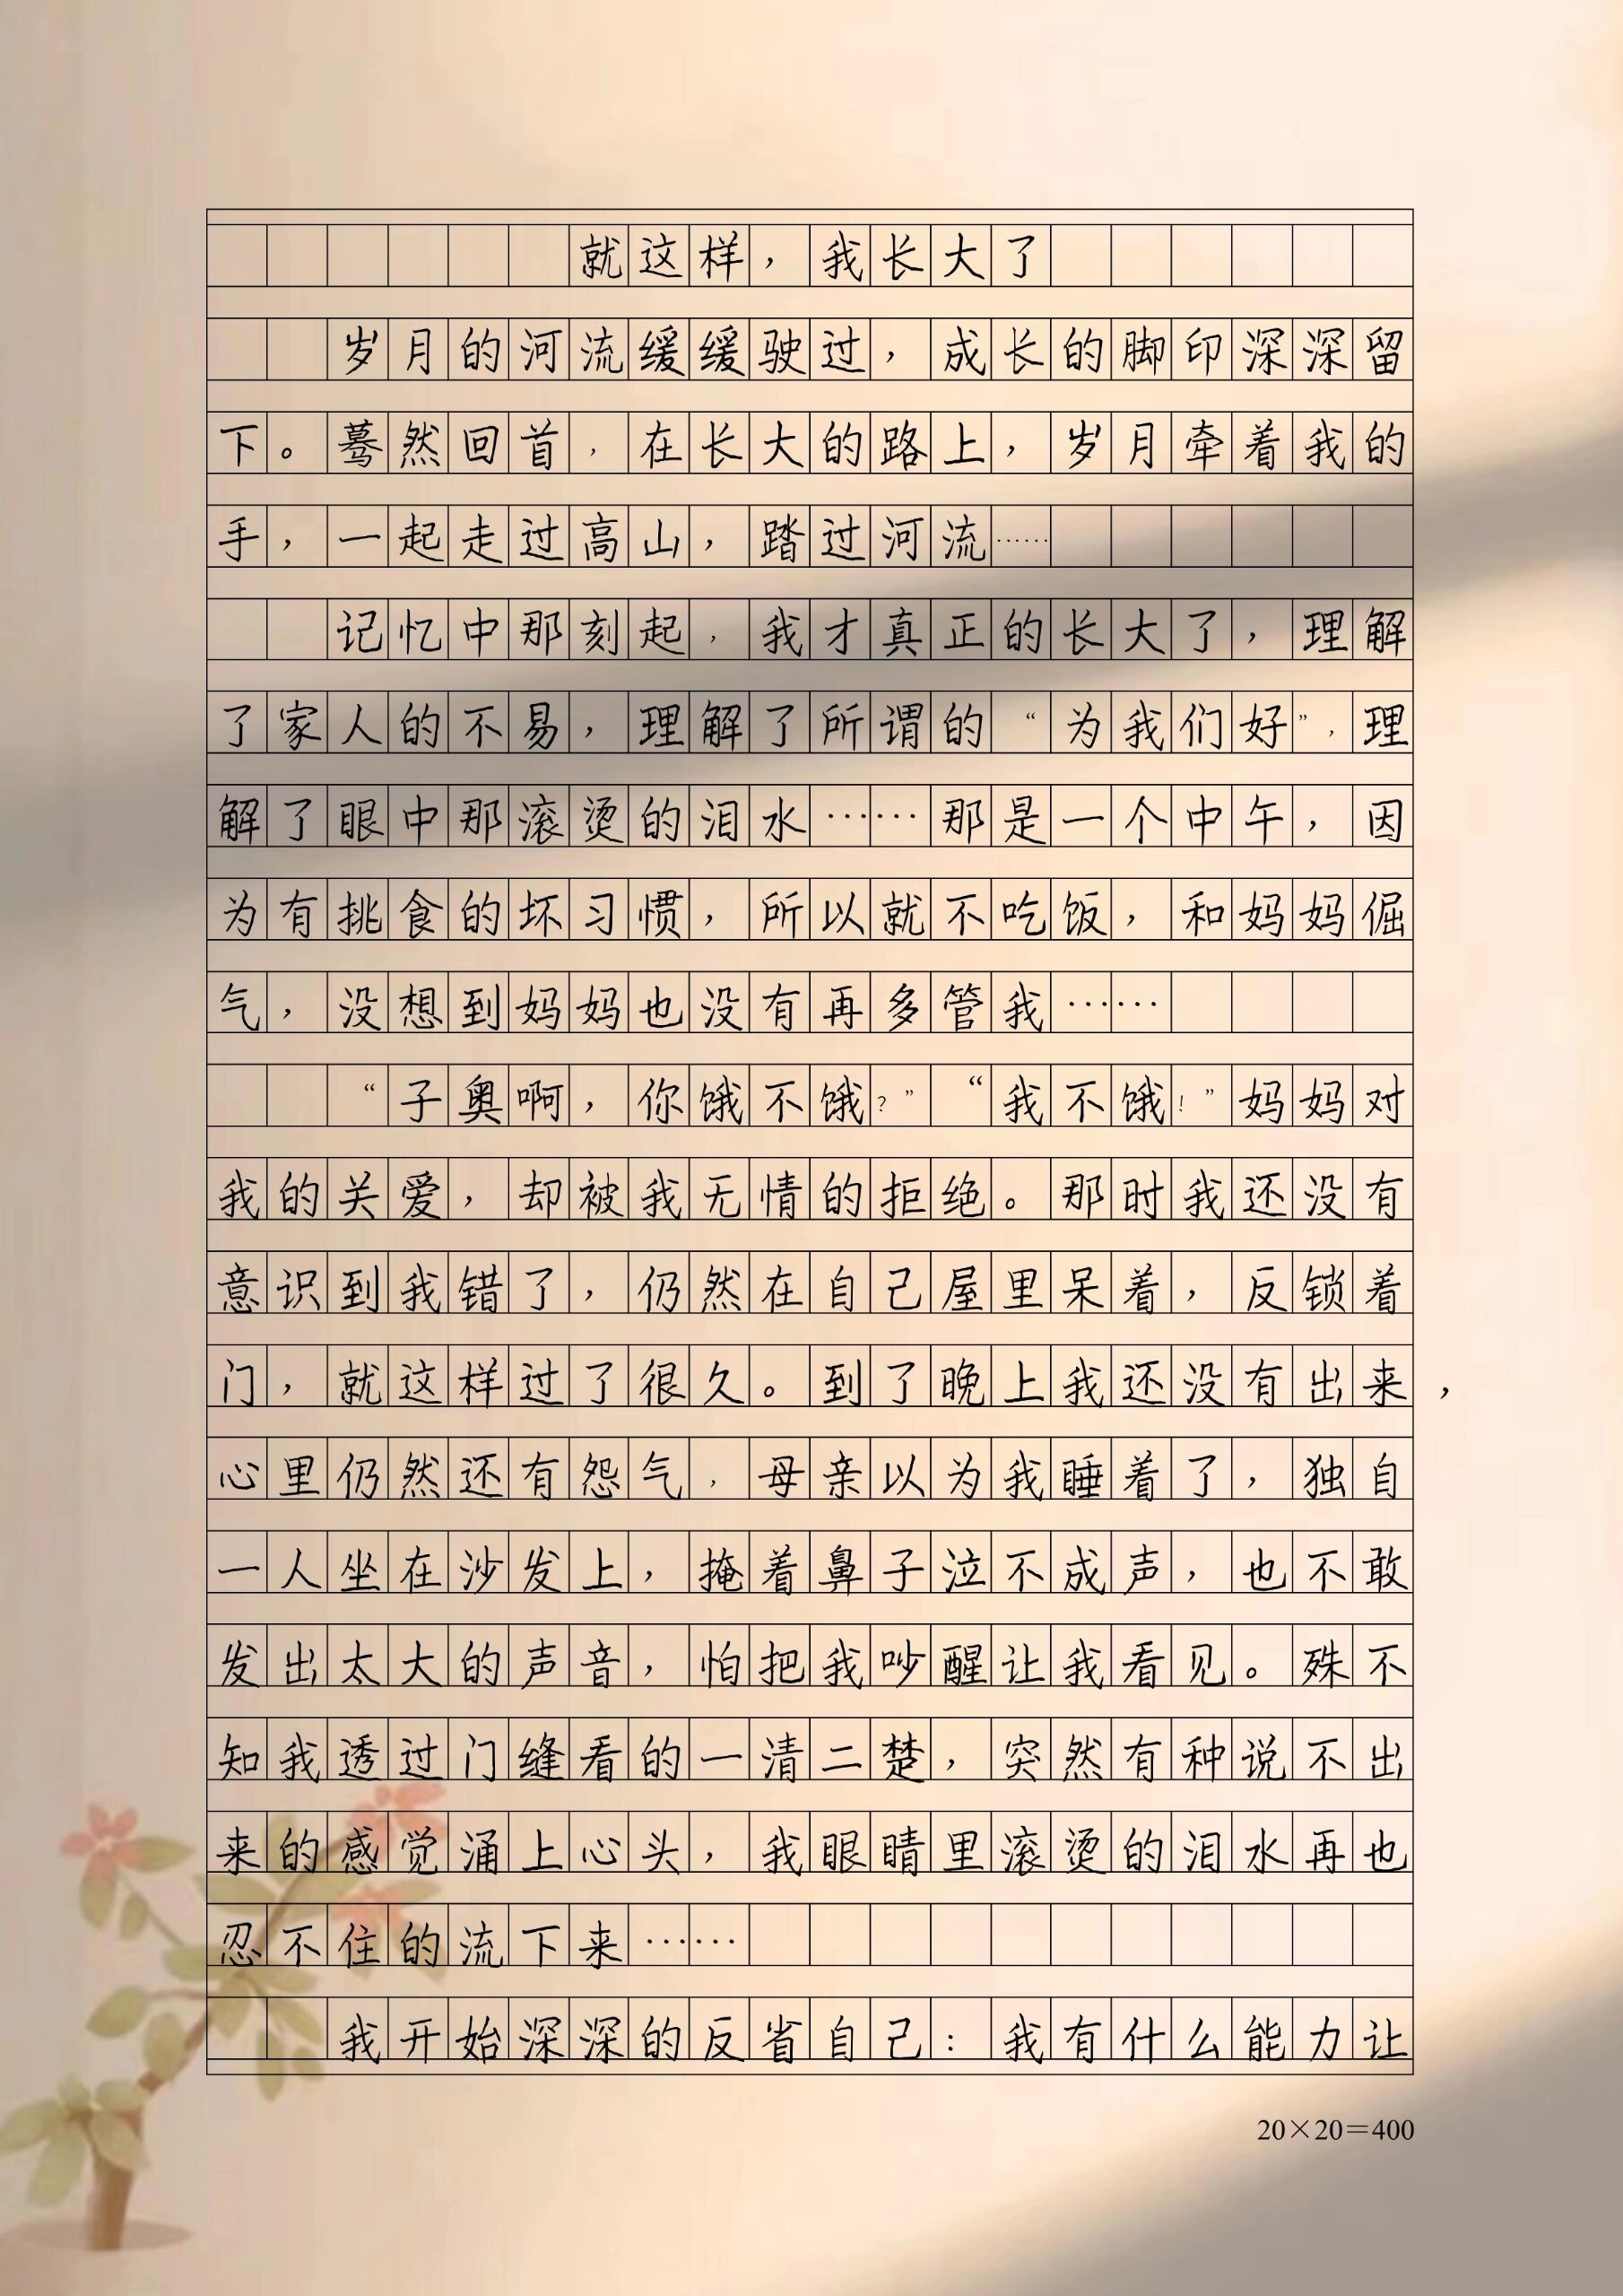 就这样，我长大了
岁月的河流缓缓驶过，成长的脚印深深留
下。蓦然回首，在长大的路上，岁月牵着我的
手，一起走过高山，踏过河流……
记忆中那刻起，我才真正的长大了，理解
了家人的不易，理解了所谓的“为我们好”，理
解了眼中那滚烫的泪水……那是一个中午，因
为有挑食的坏习惯，所以就不吃饭，和妈妈倔
气，没想到妈妈也没有再多管我……
“子奥啊，你饿不饿？”“我不饿！”妈妈对
我的关爱，却被我无情的拒绝。那时我还没有
意识到我错了，仍然在自己屋里呆着，反锁着
门，就这样过了很久。到了晚上我还没有出来，
心里仍然还有怨气，母亲以为我睡着了，独自
一人坐在沙发上，掩着鼻子泣不成声，也不敢
发出太大的声音，怕把我吵醒让我看见。殊不
知我透过门缝看的一清二楚，突然有种说不出
来的感觉涌上心头，我眼睛里滚烫的泪水再也
忍不住的流下来……
我开始深深的反省自己：我有什么能力让
20×20=400